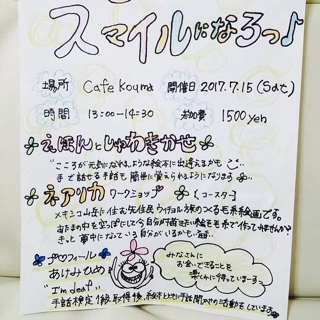 スマイルになろっ♪
場所 Cafe Kouma 開催日 2017.7.15(Sat)
時間 13:00-14:30 参加費 1500yen
えほんとしゅわきかせ
"こころが元気になれる"ような絵本に出逢えるかも
手で話せる手話も簡単に覚えられるようになります
ネアリカ ワークショップ 【コースター】
メキシコ山岳に住む先住民ウイチョル族のつくる毛糸絵画です。
あたまの中を空っぽにして今自分が描きたい絵を毛糸で作ってみませんか?
きっと夢中になっている自分がいるかも…
プロフィール
あけみひめ
"I'm deaf"
みなさんに
お会いできることを
楽しみに待っていまーす
手話検定1級取得後、絵本とともに手話関わりの活動をしています